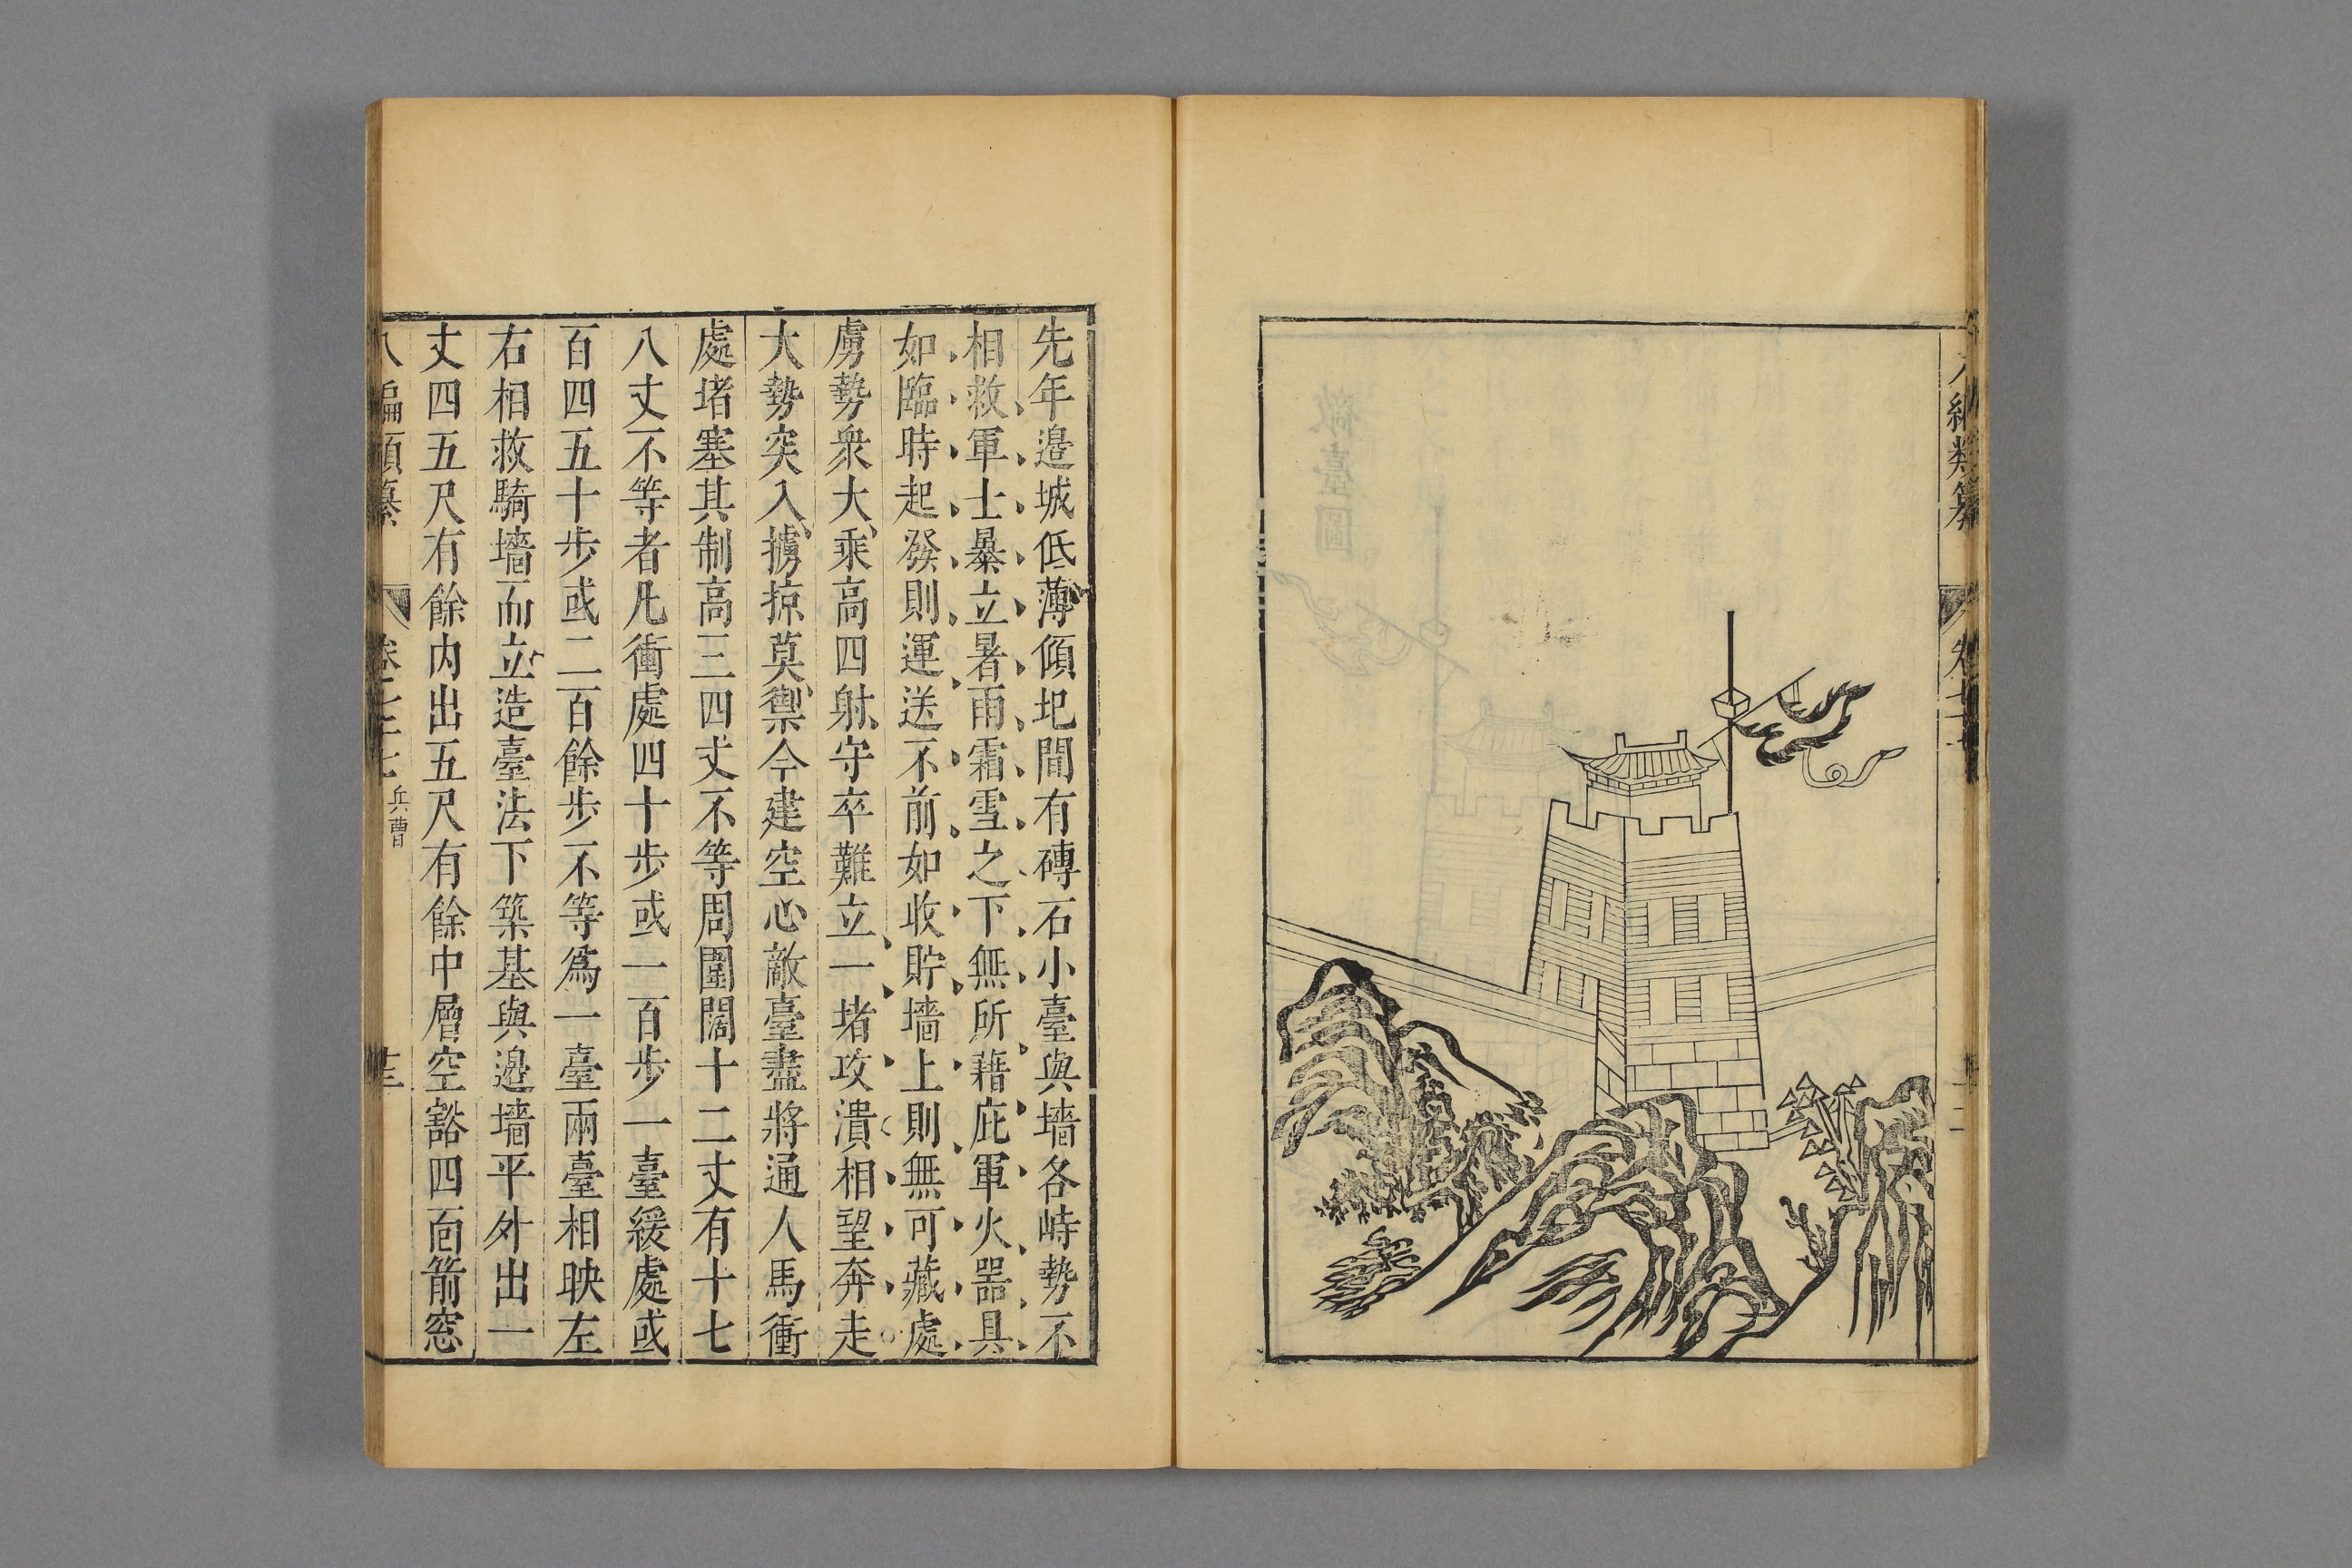 編類纂
先年邉城低薄傾圮間有磚石小臺與墻各峙勢不
相救軍士暴立暑雨霜雪之下無所藉庇軍火噐具
如臨時起發則運送不前如收貯墻上則無可藏處
虜勢衆大乘高四射守卒難立一堵攻潰相望奔走
大勢突入擄掠莫禦今建空心敵臺盡將通人馬衝
處堵塞其制高三四丈不等周圍闊十二丈有十七
八丈不等者凡衝處四十步或一百步一臺緩處或
百四五十步或二百餘步不等爲一臺兩臺相映左
右相救騎墻而立造臺法下築基與邉墻平外出一
丈四五尺有餘内出五尺有餘中層空豁四面箭窓
八編類纂
卷七十七
兵曹
十三